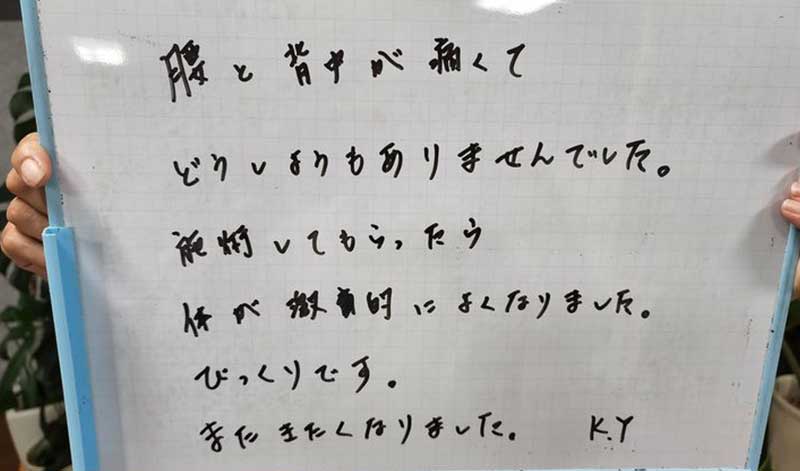 腰と背中が痛くて
どうしようもありませんでした。
施術してもらったら
体が 的によくなりました。
びっくりです。
またきたくなりました。 K.Y